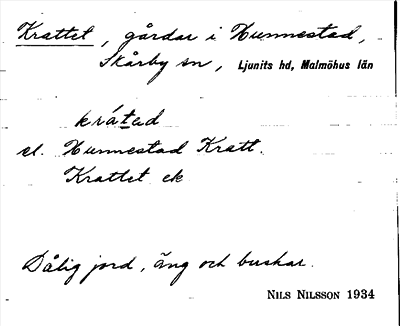 Krattet, gårdar i Hunnestad,
Skårby sn, Ljunits hd, Malmöhus län
krátad
el. Hunnestad Kratt.
Krattet ek
Dålig jord, äng och buskar.
NILS NILSSON 1934